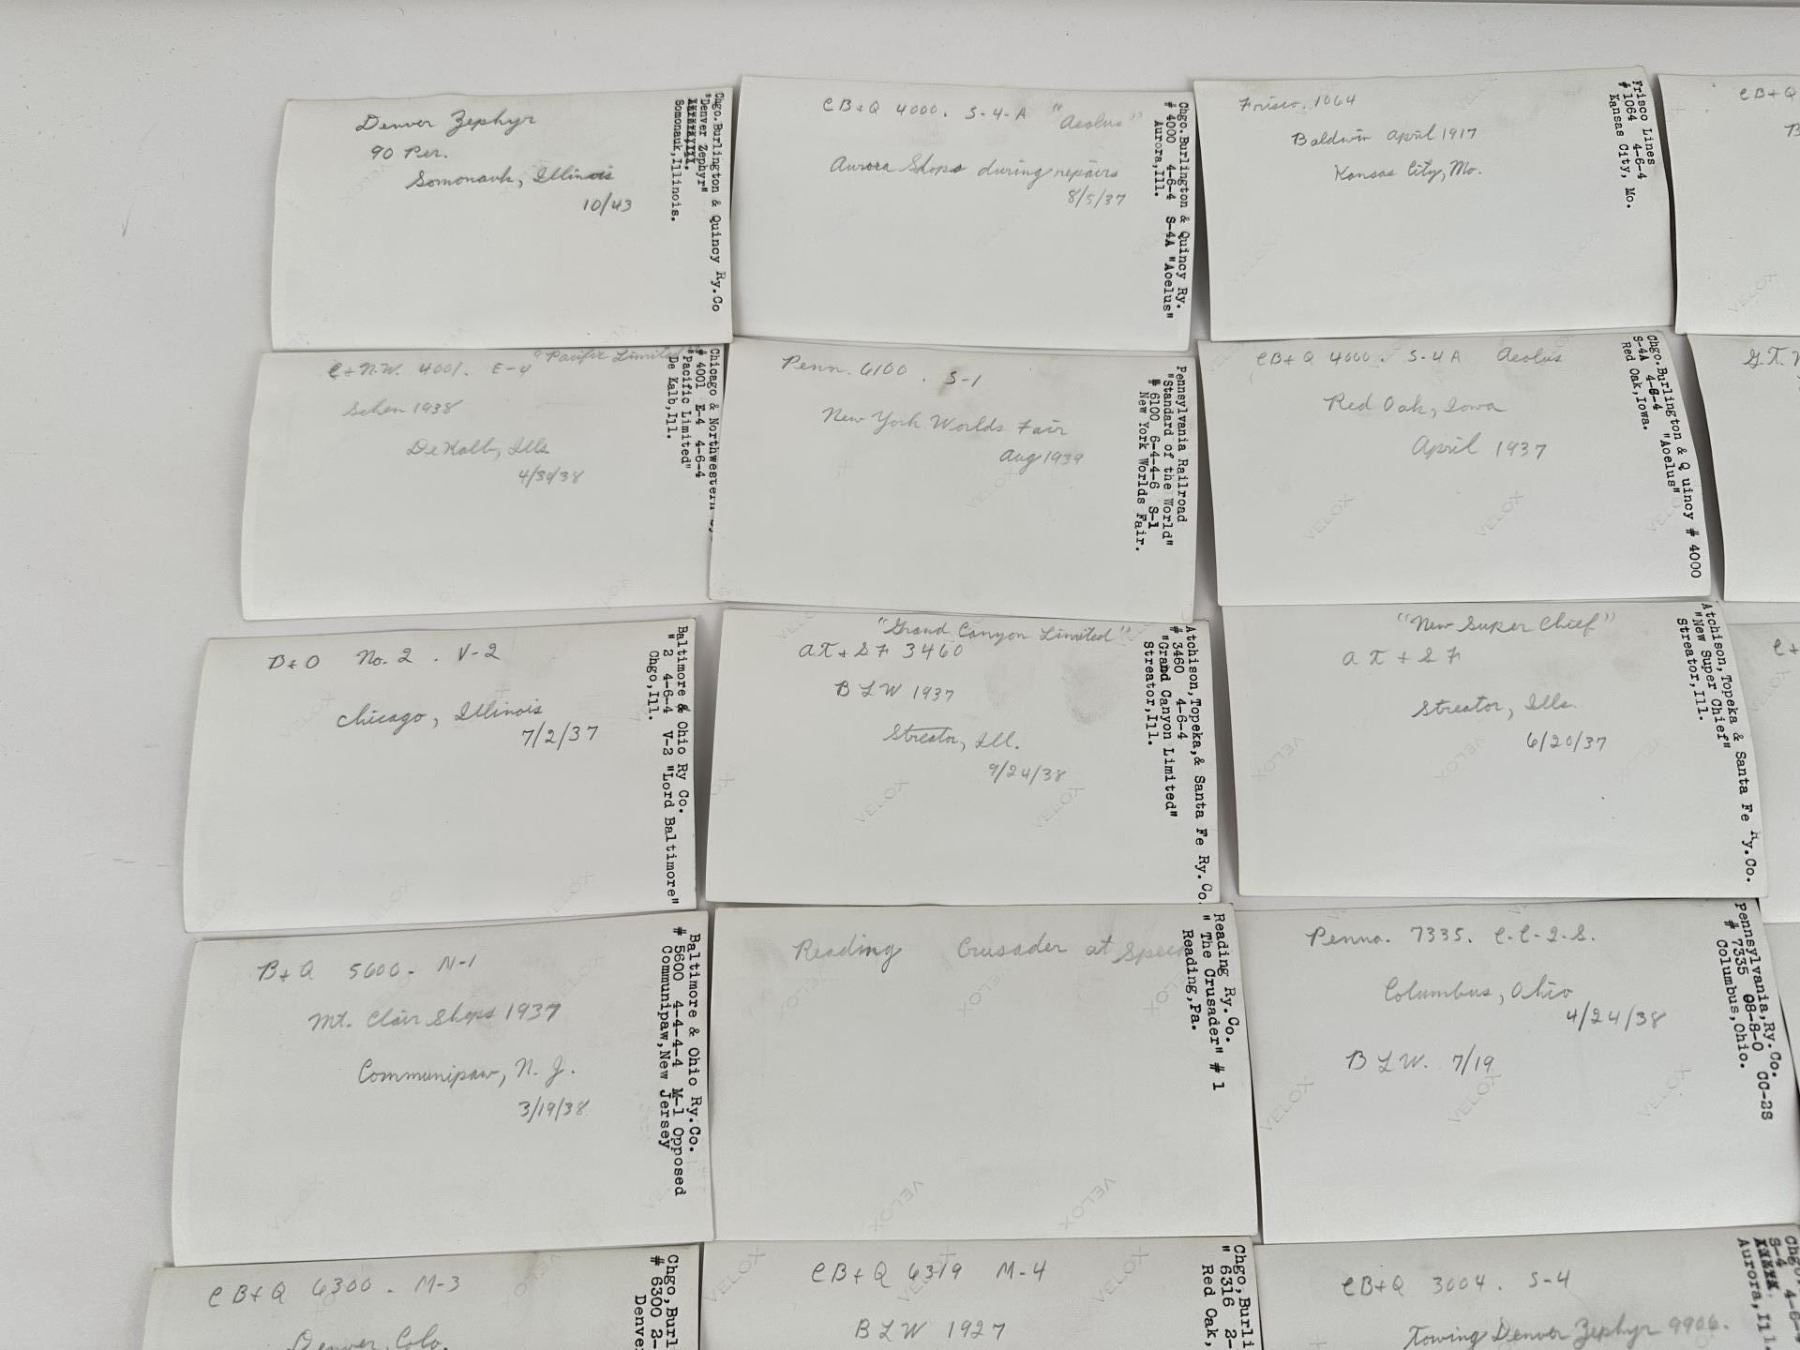 Denver Zephyr
90 Per.
Somonauk, Illinois
10/43
Chgo.Burlington & Quincy Ry.Co
"Denver Zephyr"
Somonauk,Illinois.
CB+Q 4000. S-4-A "Aeolus"
Aurora Shops during repairs
8/5/37
Chgo.Burlington & Quincy Ry.
# 4000 4-6-4 S-4A "Aoelus"
Aurora,Ill.
Frisco. 1064
Baldwin April 1917
Kansas City, Mo.
Frisco Lines
# 1064 4-6-4
Kansas City, Mo.
CB+Q
C+N.W. 4001. E-4 "Pacific Limited"
Schen 1938
DeKalb, Ills
4/30/38
Chicago & Northwestern
# 4001 E-4 4-6-4
"Pacific Limited"
De Kalb,Ill.
Penn. 6100. S-1
New York Worlds Fair
Aug 1939
Pennsylvania Railroad
"Standard of the World"
# 6100 6-4-4-6 S-1
New York Worlds Fair.
CB+Q 4000. S-4A Aeolus
Red Oak, Iowa
April 1937
Chgo.Burlington & Q uincy # 4000
S-4A 4-6-4 "Aoelus"
Red Oak,Iowa.
G.T.
B+O No. 2. V-2
Chicago, Illinois
7/2/37
Baltimore & Ohio Ry Co.
" 2 4-6-4 V-2 "Lord Baltimore"
Chgo,Ill.
"Grand Canyon Limited"
AT+SF 3460
BLW 1937
Streator, Ill.
9/24/38
Atchison,Topeka,& Santa Fe Ry.Co.
# 3460 4-6-4
"Grand Canyon Limited"
Streator,Ill.
"New Super Chief"
AT+SF
Streator, Ills.
6/20/37
Atchison,Topeka & Santa Fe Ry.Co.
"New Super Chief"
Streator,Ill.
C+
B+O 5600. N-1
Mt. Clair Shops 1937
Communipaw, N.J.
3/19/38
Baltimore & Ohio Ry.Co.
# 5600 4-4-4-4 M-1 Opposed
Communipaw,New Jersey
Reading Crusader at Speed
Reading Ry.Co.
" The Crusader" # 1
Reading,Pa.
Penna. 7335. C-C-2-S.
Columbus, Ohio
4/24/38
BLW. 7/19
Pennsylvania,Ry.Co.
# 7335 08-8-0 CC-2S
Columbus,Ohio.
CB+Q 6300. M-3
Denver, Colo.
Chgo,Burl
# 6300 2-
Denve
CB+Q 6319 M-4
BLW 1927
Chgo,Burli
" 6316 2-
Red Oak,
CB+Q 3004. S-4
Towing Denver Zephyr 9906.
Chgo.
S-4 4-6-4
Aurora,Ill.
VELOX